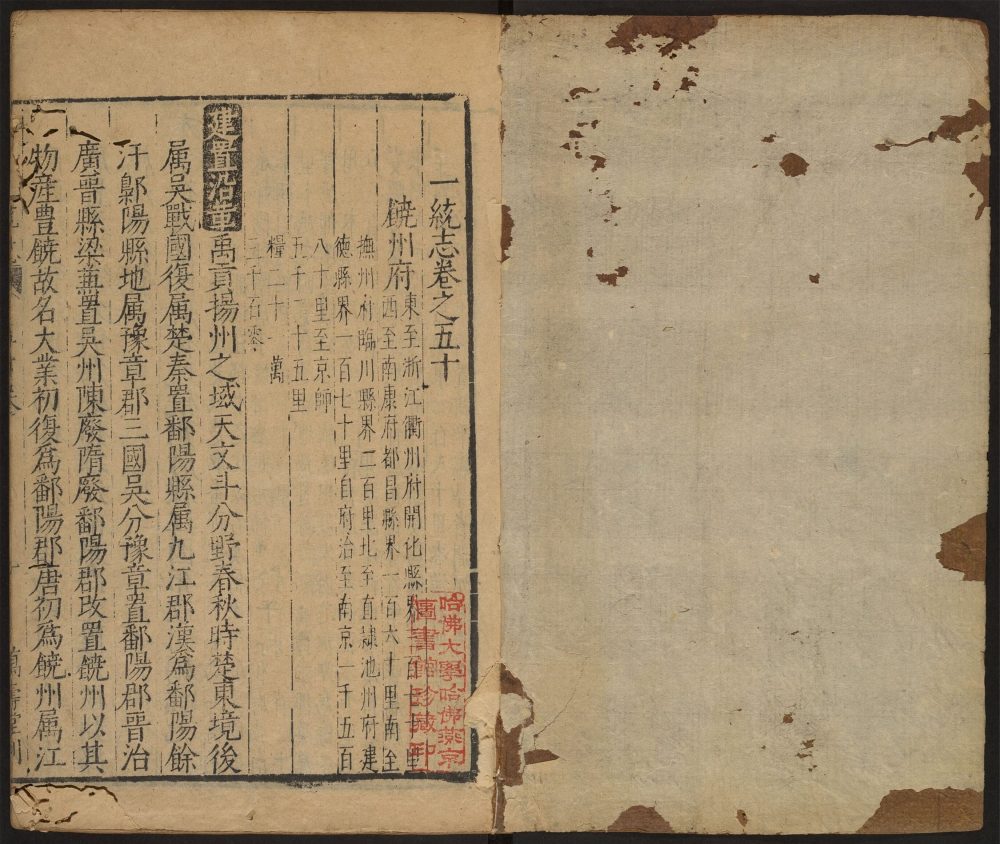 一統志卷之五十
饒州府 東至浙江衢州府開化縣界一百七十里
西至南康府都昌縣界一百六十里南至
撫州府臨川縣界二百里北至直隷池州府建
德縣界一百七十里自府治至南京一千五百
八十里至京師
五千一十五里
糧二十一萬
三千百零
建置沿革 禹貢揚州之域天文斗分野春秋時楚東境後
属吳戰國復属楚秦置鄱陽縣属九江郡漢為鄱陽餘
汗鄡陽縣地属豫章郡三國吳分豫章置鄱陽郡晉治
廣晉縣梁兼置吳州陳廢隋廢鄱陽郡改置饒州以其
物産豊饒故名大業初復爲鄱陽郡唐初爲饒州属江
萬壽堂刊
哈佛大學哈佛燕京
圖書館珍藏印